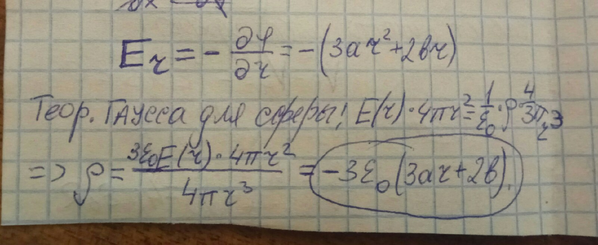 E_r = - ∂φ/∂r = -(3ar²+2br)
Теор. Гаусса для сферы! E(r)·4πr² = 1/ε₀ · ρ 4/3 πr³
=> ρ = 3ε₀E(r)·4πr² / 4πr³ = -3ε₀(3ar+2b).